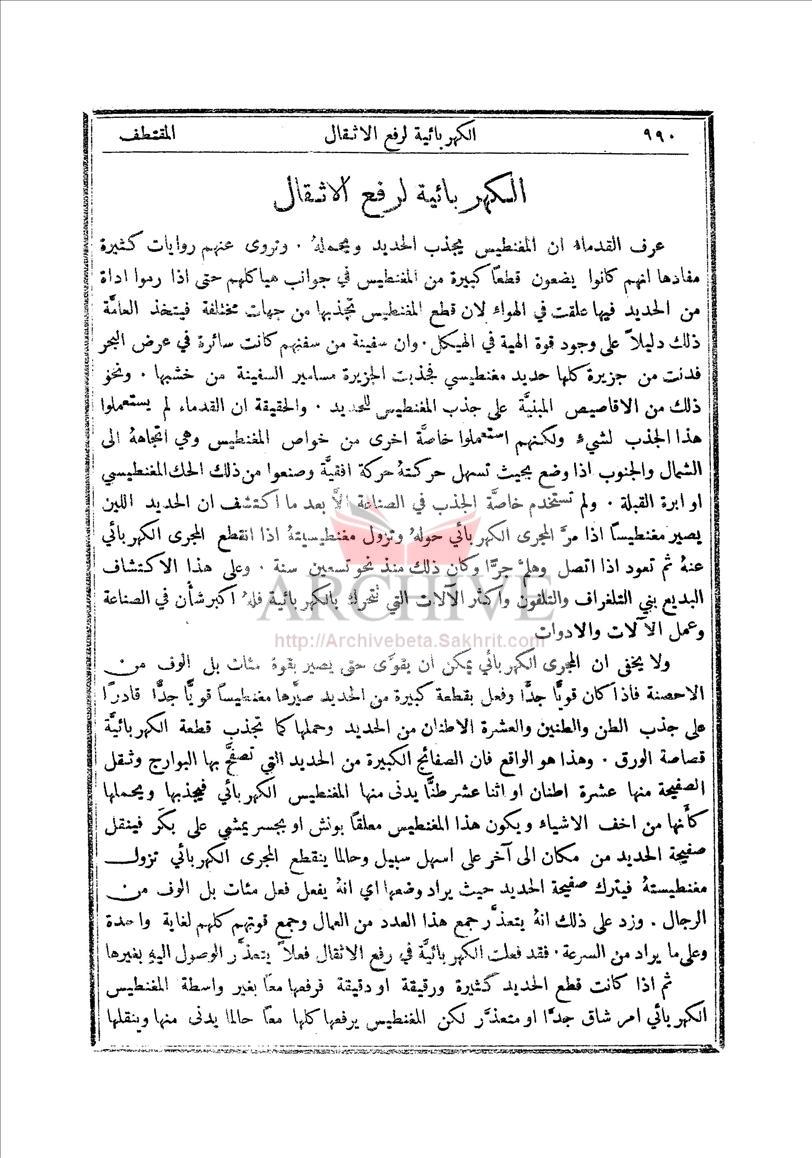 ٩٩٠ الكهربائية لرفع الاثقال المقتطف
الكهربائية لرفع الاثقال
عرف القدماءُ ان المغنطيس يجذب الحديد ويحملهُ ٠ وتروى عنهم روايات كثيرة
مفادها انهم كانوا يضعون قطعًا كبيرة من المغنطيس في جوانب هياكلهم حتى اذا رموا اداة
من الحديد فيها علقت في الهواء لان قطع المغنطيس تجذبها من جهات مختلفة فيتخذ العامَّة
ذلك دليلاً على وجود قوة الهية في الهيكل ٠ وان سفينة من سفنهم كانت سائرة في عرض البحر
فدنت من جزيرة كلها حديد مغنطيسي فجذبت الجزيرة مسامير السفينة من خشبها ٠ ونحو
ذلك من الاقاصيص المبنيَّة على جذب المغنطيس للحديد ٠ والحقيقة ان القدماء لم يستعملوا
هذا الجذب لشيءٍ ولكنهم استعملوا خاصَّة اخرى من خواص المغنطيس وهي اتجاههُ الى
الشمال والجنوب اذا وضع بحيث تسهل حركتهُ حركة افقيَّة وصنعوا من ذلك الحك المغنطيسي
او ابرة القبلة ٠ ولم تستخدم خاصَّة الجذب في الصناعة الاَّ بعد ما اكتشف ان الحديد اللين
يصير مغنطيسًا اذا مرَّ المجرى الكهربائي حولهُ وتزول مغنطيسيتهُ اذا انقطع المجرى الكهربائي
عنهُ ثم تعود اذا اتصل وهلمَّ جرًّا وكان ذلك منذ نحو تسعين سنة ٠ وعلى هذا الاكتشاف
البديع بني التلغراف والتلفون واكثر الآلات التي تتحرك بالكهربائية فلهُ اكبر شأن في الصناعة
وعمل الآلات والادوات
ولا يخفى ان المجرى الكهربائي يمكن ان يقوَّى حتى يصير بقوة مئات بل الوف من
الاحصنة فاذا كان قويًّا جدًّا وفعل بقطعة كبيرة من الحديد صيَّرها مغنطيسًا قويًّا جدًّا قادرًا
على جذب الطن والطنين والعشرة الاطنان من الحديد وحملها كما تجذب قطعة الكهربائيَّة
قصاصة الورق ٠ وهذا هو الواقع فان الصفائح الكبيرة من الحديد التي تصفَّح بها البوارج وثقل
الصفيحة منها عشرة اطنان او اثنا عشر طنًّا يدنى منها المغنطيس الكهربائي فيجذبها ويحملها
كأنها من اخف الاشياء ويكون هذا المغنطيس معلقًا بونش او بجسر يمشي على بكَر فينقل
صفيحة الحديد من مكان الى آخر على اسهل سبيل وحالما ينقطع المجرى الكهربائي تزول
مغنطيستهُ فيترك صفيحة الحديد حيث يراد وضعها اي انهُ يفعل فعل مئات بل الوف من
الرجال ٠ وزد على ذلك انهُ يتعذَّر جمع هذا العدد من العمال وجمع قوتهم كلهم لغاية واحدة
وعلى ما يراد من السرعة ٠ فقد فعلت الكهربائيَّة في رفع الاثقال فعلاً يتعذَّر الوصول اليهِ بغيرها
ثم اذا كانت قطع الحديد كثيرة ورقيقة او دقيقة فرفعها معًا بغير واسطة المغنطيس
الكهربائي امر شاق جدًّا او متعذَّر لكن المغنطيس يرفعها كلها معًا حالما يدنى منها وينقلها
ARCHIVE
http://Archivebeta.Sakhrit.com